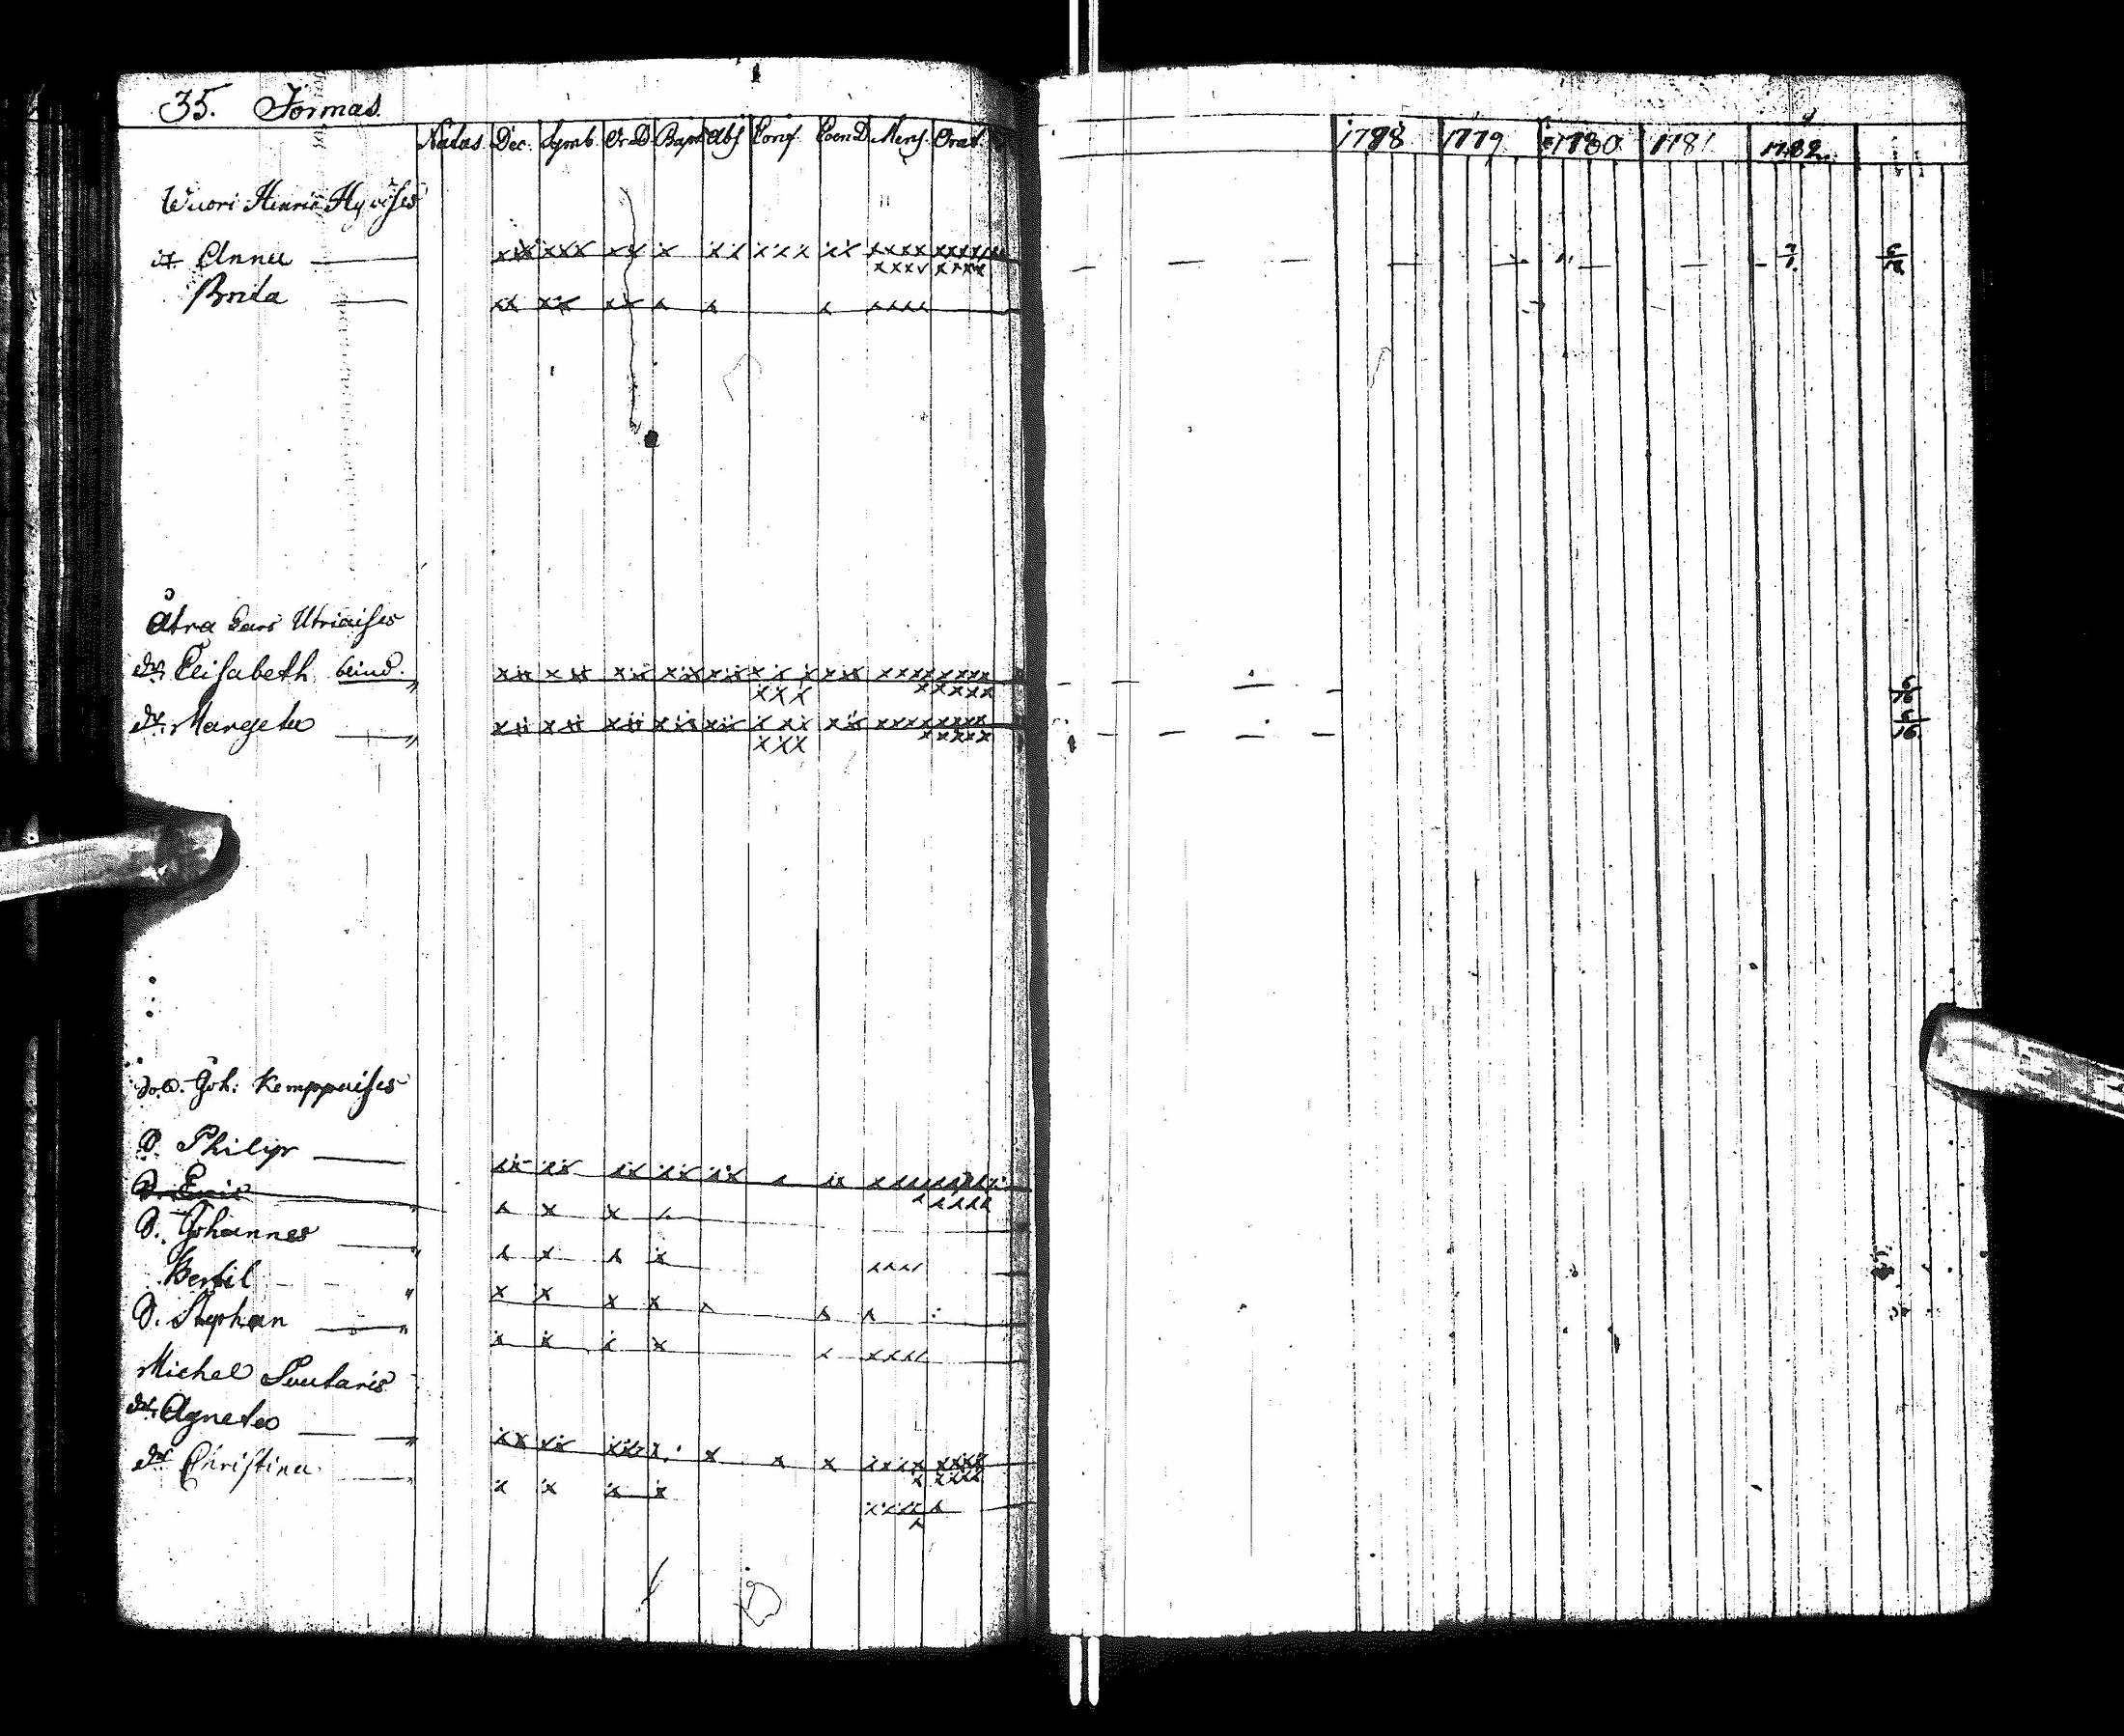 35. Sormas.
Natas Dec. Symb. Or.D Bapt Abs Conf. Coen D. Mens. Orat.
1778 1779 1780 1781 1782
Wuori Henric Hyvöises
Anna
Brita
Åtra Lars Utriaises
dr. Elisabeth blind.
dr. Margeta
Joh. Kemppaises
S. Philip
S. Eric
S. Johannes
Bertil
S. Stephan
Michel Poutaris
dr. Agneta
dr Christina